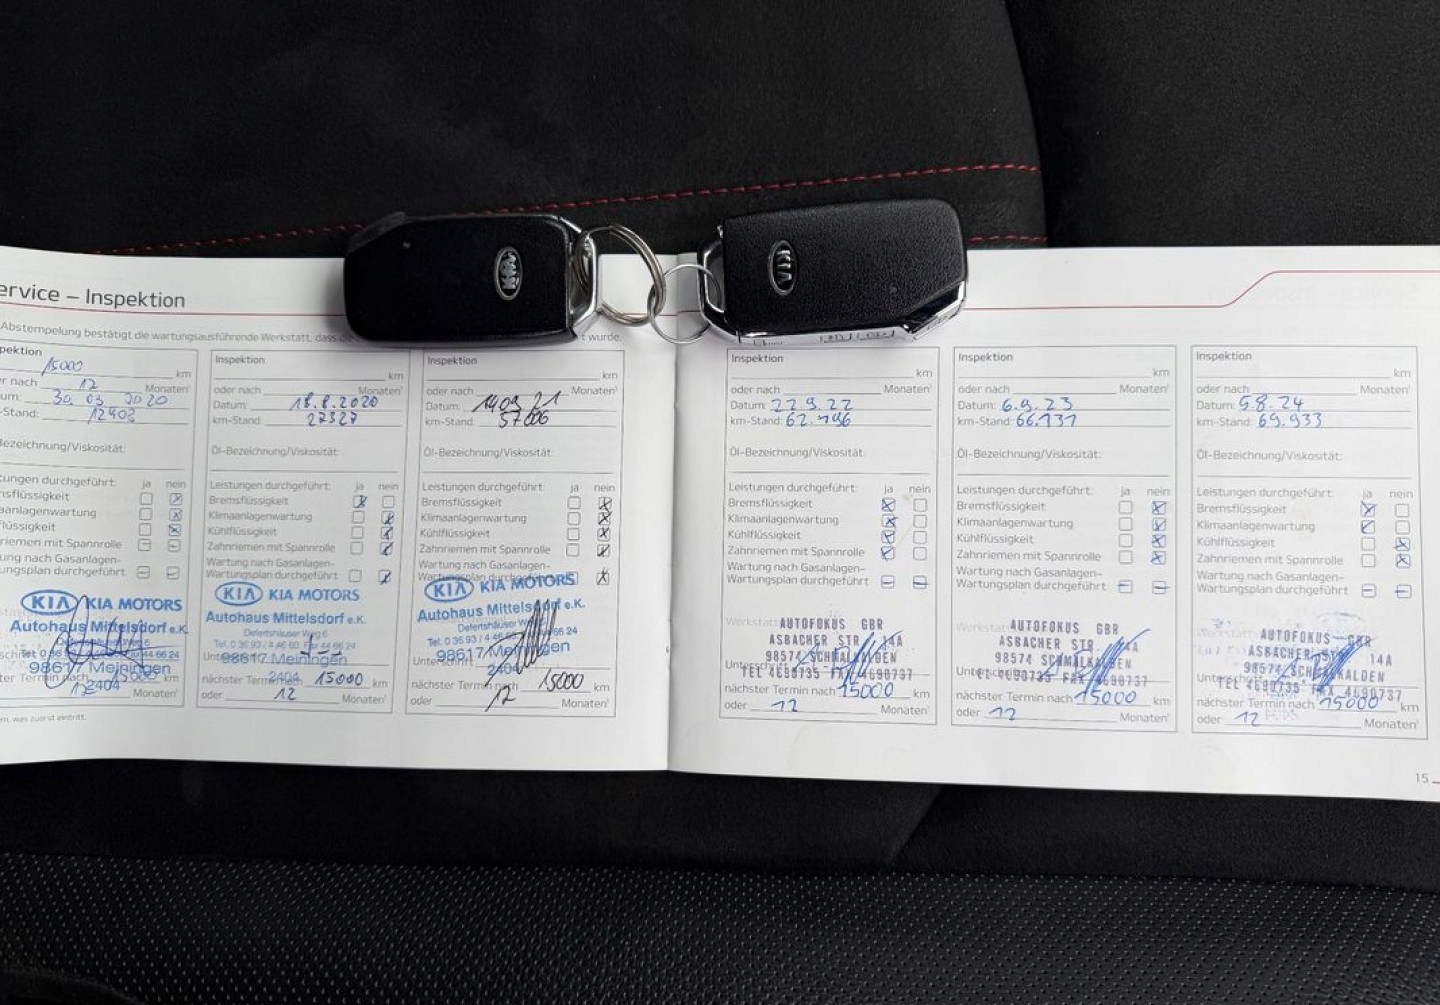 ervice – Inspektion
Abstempelung bestätigt die wartungsausführende Werkstatt, dass die
t wurde.
pektion
15000 km
r nach 12 Monaten¹
um: 30. 03 2020
-Stand: 12902
ezeichnung/Viskosität:
tungen durchgeführt: ja nein
msflüssigkeit
maanlagenwartung
flüssigkeit
riemen mit Spannrolle
tung nach Gasanlagen-
ungsplan durchgeführt
KIA KIA MOTORS
Autohaus Mittelsdorf e.K.
98617 Meiningen
2404
ter Termin nach 15000 km
12 Monaten¹
en, was zuerst eintritt.
Inspektion
km
oder nach Monaten¹
Datum: 18.8.2020
km-Stand: 27327
Öl-Bezeichnung/Viskosität:
Leistungen durchgeführt: ja nein
Bremsflüssigkeit
Klimaanlagenwartung
Kühlflüssigkeit
Zahnriemen mit Spannrolle
Wartung nach Gasanlagen-
Wartungsplan durchgeführt
KIA KIA MOTORS
Autohaus Mittelsdorf e.K.
Defertshäuser Weg 6
Tel. 0 36 93 / 4 46 60, Fax 44 66 24
98617 Meiningen
2404
nächster Termin nach 15000 km
oder 12 Monaten¹
Inspektion
km
oder nach Monaten¹
Datum: 14.09.21
km-Stand: 57006
Öl-Bezeichnung/Viskosität:
Leistungen durchgeführt: ja nein
Bremsflüssigkeit
Klimaanlagenwartung
Kühlflüssigkeit
Zahnriemen mit Spannrolle
Wartung nach Gasanlagen-
Wartungsplan durchgeführt
KIA KIA MOTORS
Autohaus Mittelsdorf e.K.
Defertshäuser Weg 6
98617 Meiningen
2404
nächster Termin nach 15000 km
oder 12 Monaten¹
KIA
KIA
Inspektion
km
oder nach Monaten¹
Datum: 22.9.22
km-Stand: 62.496
Öl-Bezeichnung/Viskosität:
Leistungen durchgeführt: ja nein
Bremsflüssigkeit
Klimaanlagenwartung
Kühlflüssigkeit
Zahnriemen mit Spannrolle
Wartung nach Gasanlagen-
Wartungsplan durchgeführt
AUTOFOKUS GBR
ASBACHER STR. 14A
98574 SCHMALKALDEN
TEL 4690735 FAX 4690737
Unterschrift
nächster Termin nach 15000 km
oder 12 Monaten¹
Inspektion
km
oder nach Monaten¹
Datum: 6.9.23
km-Stand: 66.131
Öl-Bezeichnung/Viskosität:
Leistungen durchgeführt: ja nein
Bremsflüssigkeit
Klimaanlagenwartung
Kühlflüssigkeit
Zahnriemen mit Spannrolle
Wartung nach Gasanlagen-
Wartungsplan durchgeführt
AUTOFOKUS GBR
ASBACHER STR. 14A
98574 SCHMALKALDEN
TEL 4690735 FAX 4690737
nächster Termin nach 15000 km
oder 12 Monaten¹
Inspektion
km
oder nach Monaten¹
Datum: 5.8.24
km-Stand: 69.933
Öl-Bezeichnung/Viskosität:
Leistungen durchgeführt: ja nein
Bremsflüssigkeit
Klimaanlagenwartung
Kühlflüssigkeit
Zahnriemen mit Spannrolle
Wartung nach Gasanlagen-
Wartungsplan durchgeführt
AUTOFOKUS GBR
ASBACHER STR. 14A
98574 SCHMALKALDEN
TEL 4690735 FAX 4690737
nächster Termin nach 15000 km
oder 12 Monaten¹
15